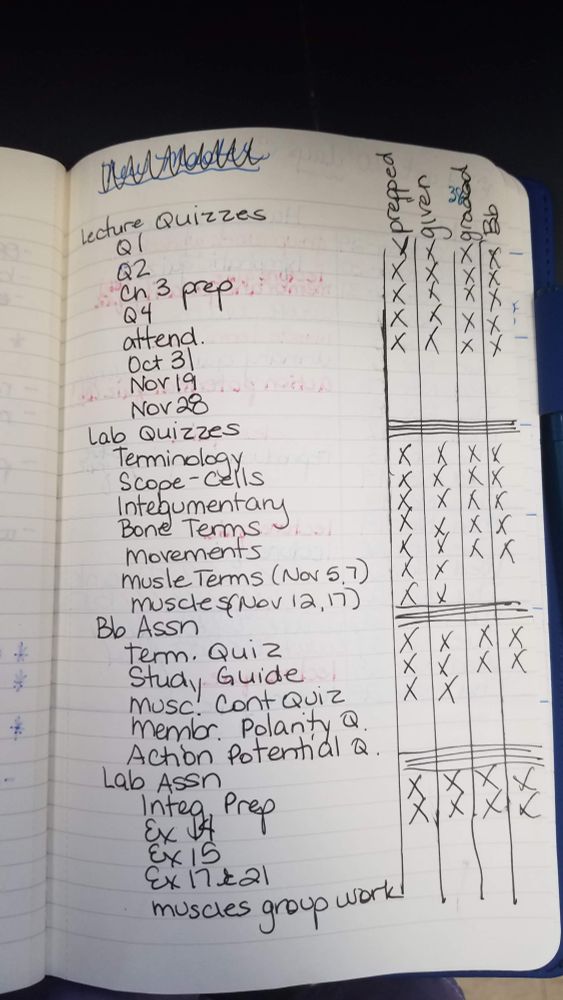 prepped given graded Bb
Lecture Quizzes
Q1 X X X X
Q2 X X X X
Ch 3 prep X X X X
Q4 X X X X
attend. X X X X
Oct 31
Nov 19
Nov 28
Lab Quizzes
Terminology X X X X
Scope-Cells X X X X
Integumentary X X X X
Bone Terms X X X X
movements X X X X
musle Terms (Nov 5,7) X X
muscles (Nov 12,17) X X
Bb Assn
Term. Quiz X X X X
Study Guide X X X X
musc. Cont Quiz X X
Membr. Polarity Q.
Action Potential Q.
Lab Assn
Integ Prep X X X X
Ex 14 X X X X
Ex 15
Ex 17 & 21
muscles group work